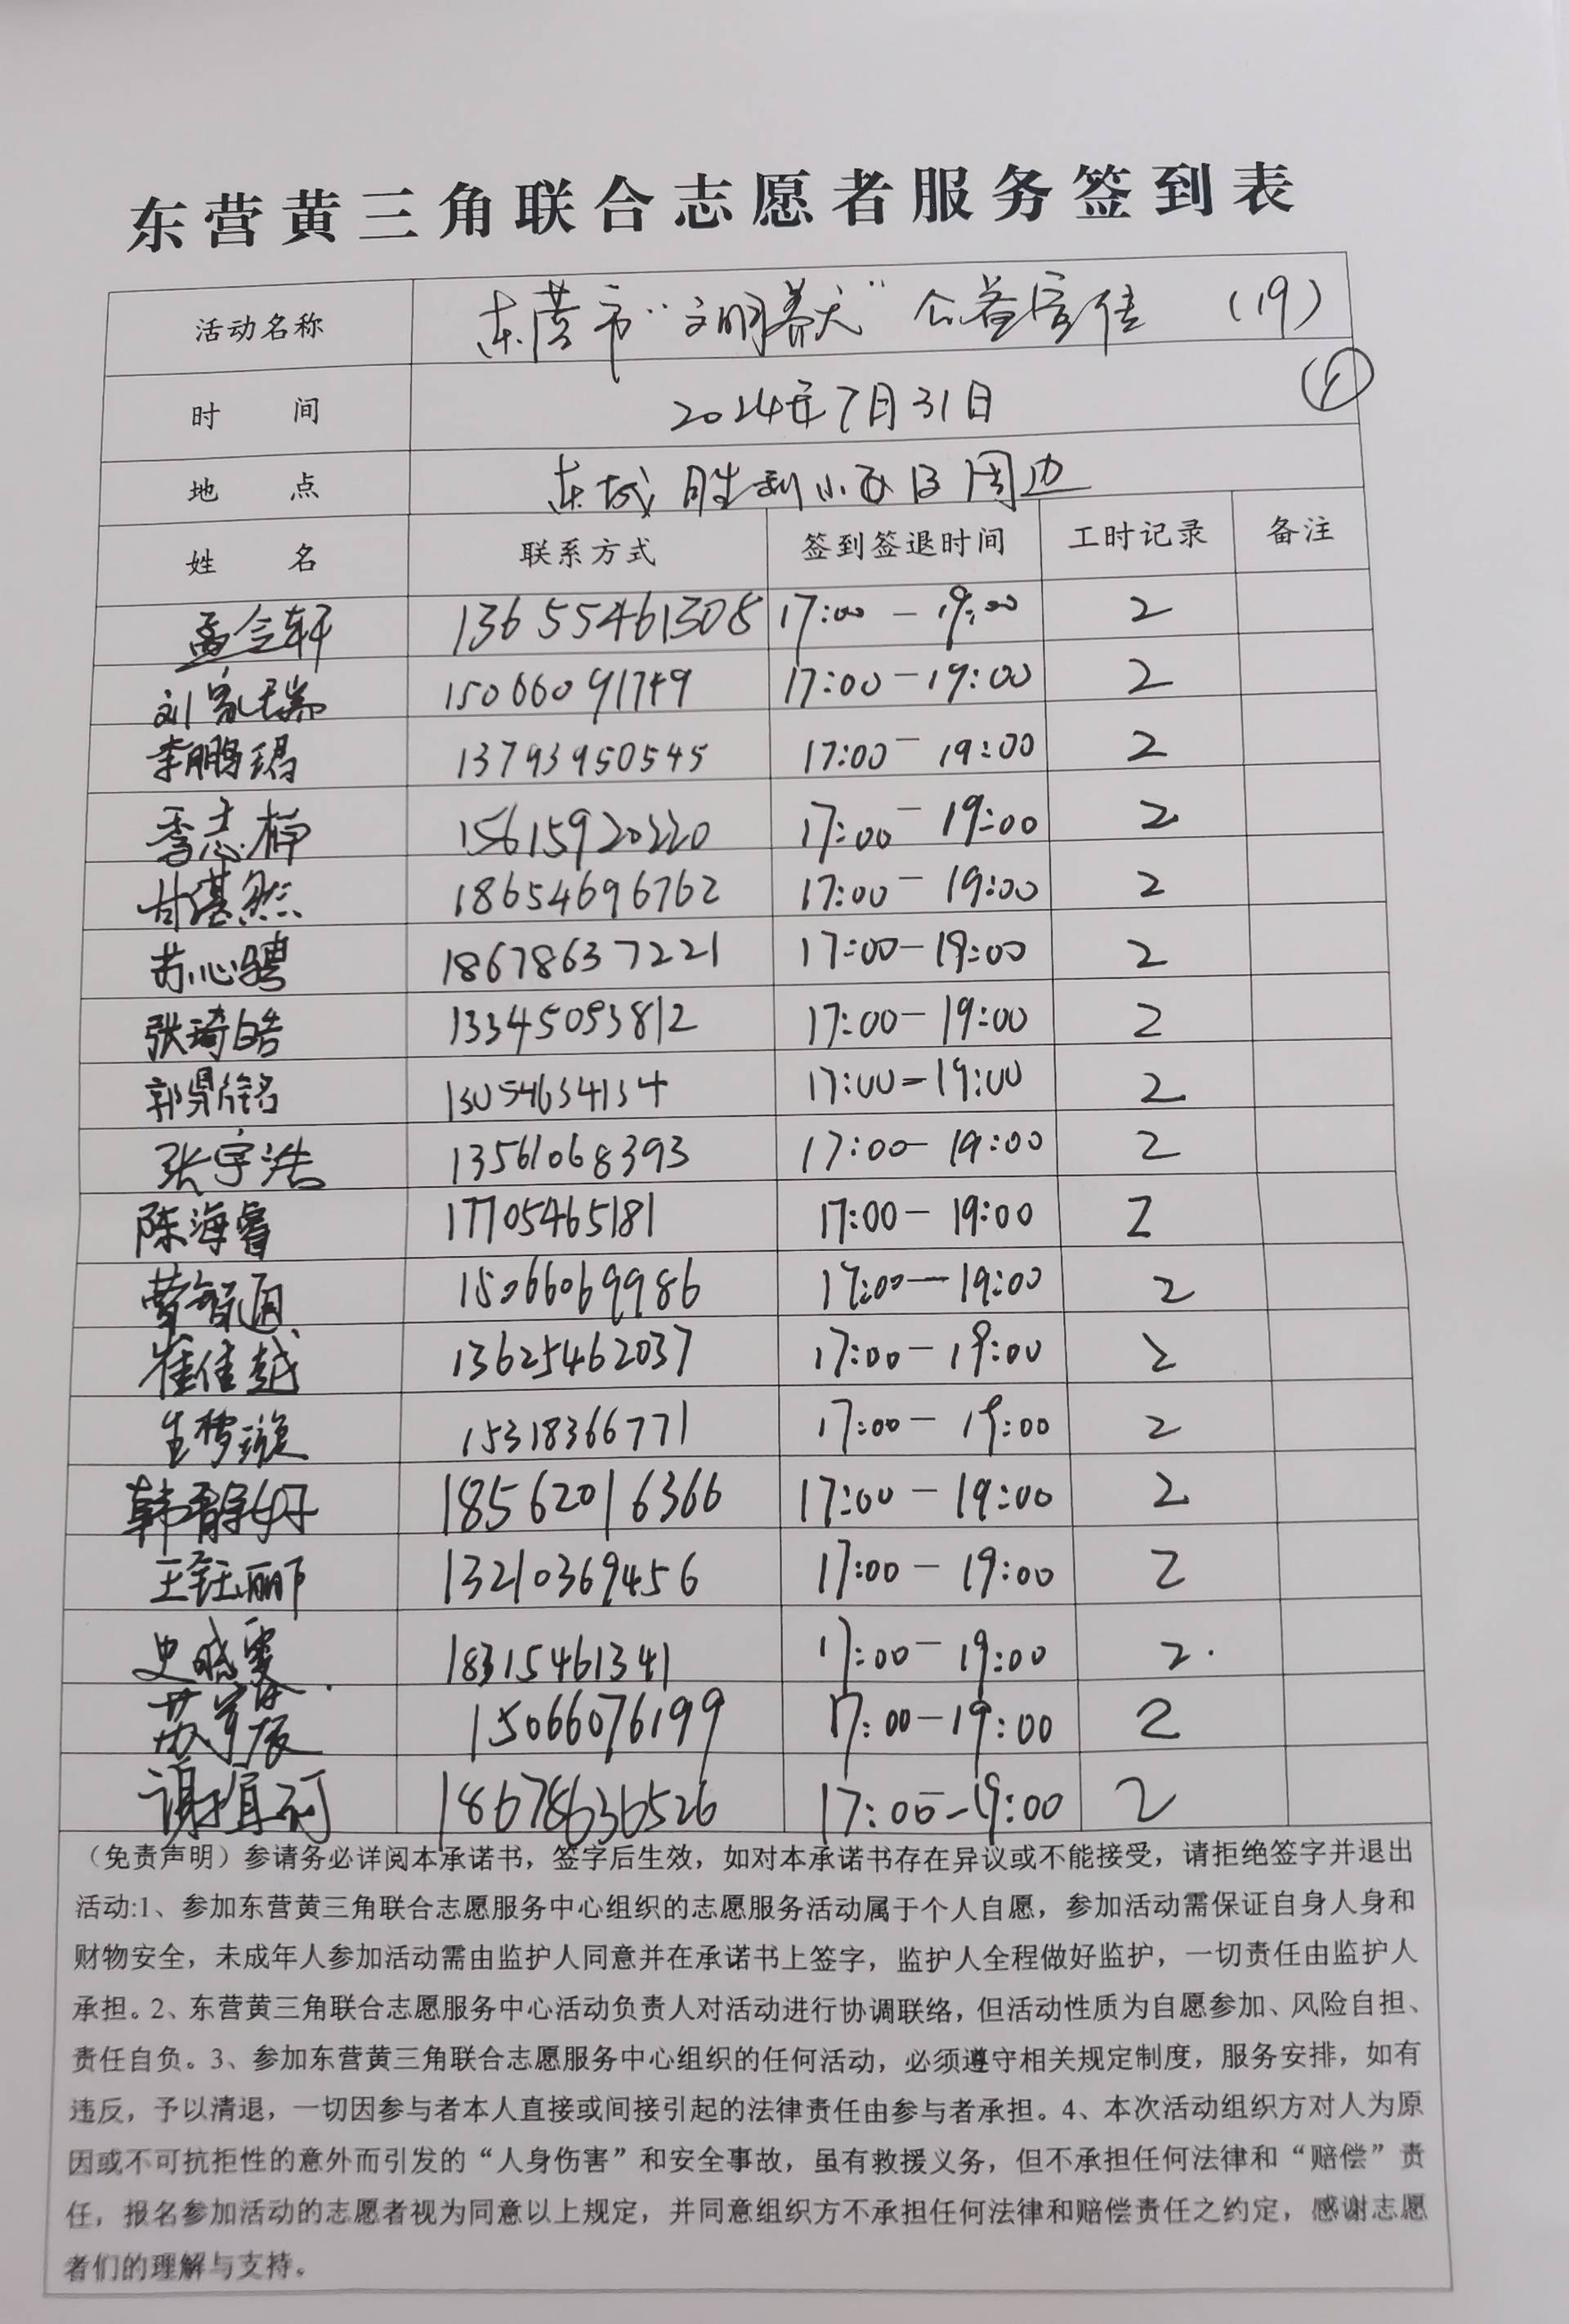 东营黄三角联合志愿者服务签到表
活动名称 东营市“文明养犬”公益宣传 (19)
时 间 2024年7月31日
地 点 东城胜利小区及周边
姓 名 联系方式 签到签退时间 工时记录 备注
孟令轩 13655461308 17:00-19:00 2
刘家瑞 15066091749 17:00-19:00 2
李鹏锡 13793950545 17:00-19:00 2
季志梆 15615920220 17:00-19:00 2
甘湛然 18654696762 17:00-19:00 2
苏心骋 18678637221 17:00-19:00 2
张琦皓 13345093812 17:00-19:00 2
郭鼎铭 13054634134 17:00-19:00 2
张宇浩 13561068393 17:00-19:00 2
陈海睿 17705465181 17:00-19:00 2
曹智通 15066069986 17:00-19:00 2
崔佳越 13625462037 17:00-19:00 2
生梦璇 15318366771 17:00-19:00 2
韩静好 18562016366 17:00-19:00 2
王钰丽 13210369456 17:00-19:00 2
史晓雯 18315461341 17:00-19:00 2.
15066076199 17:00-19:00 2
18678636526 17:00-19:00 2
（免责声明）参请务必详阅本承诺书，签字后生效，如对本承诺书存在异议或不能接受，请拒绝签字并退出
活动:1、参加东营黄三角联合志愿服务中心组织的志愿服务活动属于个人自愿，参加活动需保证自身人身和
财物安全，未成年人参加活动需由监护人同意并在承诺书上签字，监护人全程做好监护，一切责任由监护人
承担。2、东营黄三角联合志愿服务中心活动负责人对活动进行协调联络，但活动性质为自愿参加、风险自担、
责任自负。3、参加东营黄三角联合志愿服务中心组织的任何活动，必须遵守相关规定制度，服务安排，如有
违反，予以清退，一切因参与者本人直接或间接引起的法律责任由参与者承担。4、本次活动组织方对人为原
因或不可抗拒性的意外而引发的“人身伤害”和安全事故，虽有救援义务，但不承担任何法律和“赔偿”责
任，报名参加活动的志愿者视为同意以上规定，并同意组织方不承担任何法律和赔偿责任之约定，感谢志愿
者们的理解与支持。